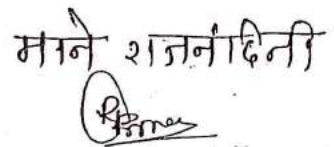 माने राजनंदिनी